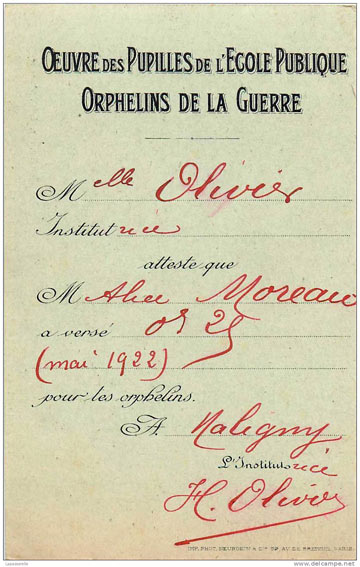 ŒUVRE DES PUPILLES DE L'ECOLE PUBLIQUE
ORPHELINS DE LA GUERRE
Melle Olivier
Institutrice
atteste que
M Alice Moreau
a versé 0f 25
(mai 1922)
pour les orphelins.
A Maligny
L'Institutrice
H. Olivier
IMP. PHOT. NEURDEIN & Cie 52, AV. DE BRETEUIL, PARIS.
delcampe.net